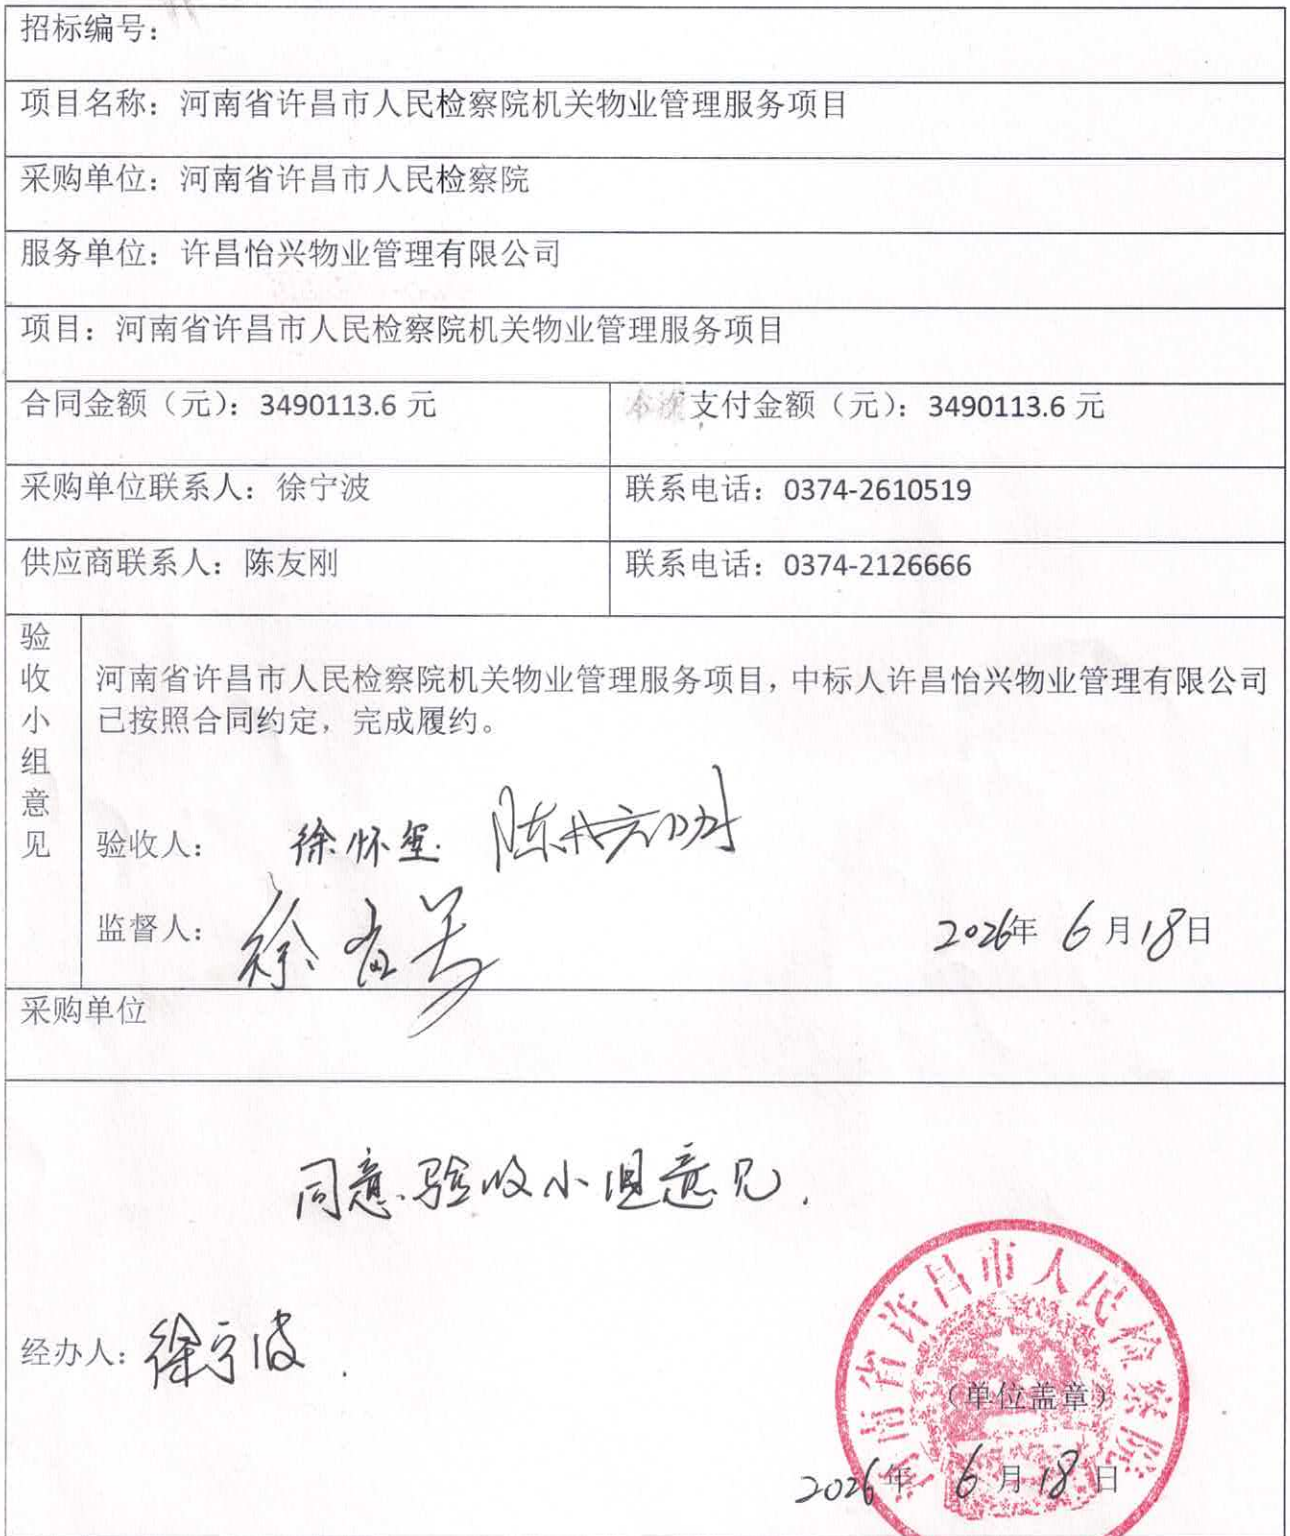 招标编号：
项目名称：河南省许昌市人民检察院机关物业管理服务项目
采购单位：河南省许昌市人民检察院
服务单位：许昌怡兴物业管理有限公司
项目：河南省许昌市人民检察院机关物业管理服务项目
合同金额（元）：3490113.6 元
本次支付金额（元）：3490113.6 元
采购单位联系人：徐宁波
联系电话：0374-2610519
供应商联系人：陈友刚
联系电话：0374-2126666
验收小组意见
河南省许昌市人民检察院机关物业管理服务项目，中标人许昌怡兴物业管理有限公司
已按照合同约定，完成履约。
验收人： 徐怀玺
监督人： 徐
2026年 6月18日
采购单位
同意验收小组意见.
经办人：徐宁波.
河南省许昌市人民检察院
（单位盖章）
2026年 6月18日